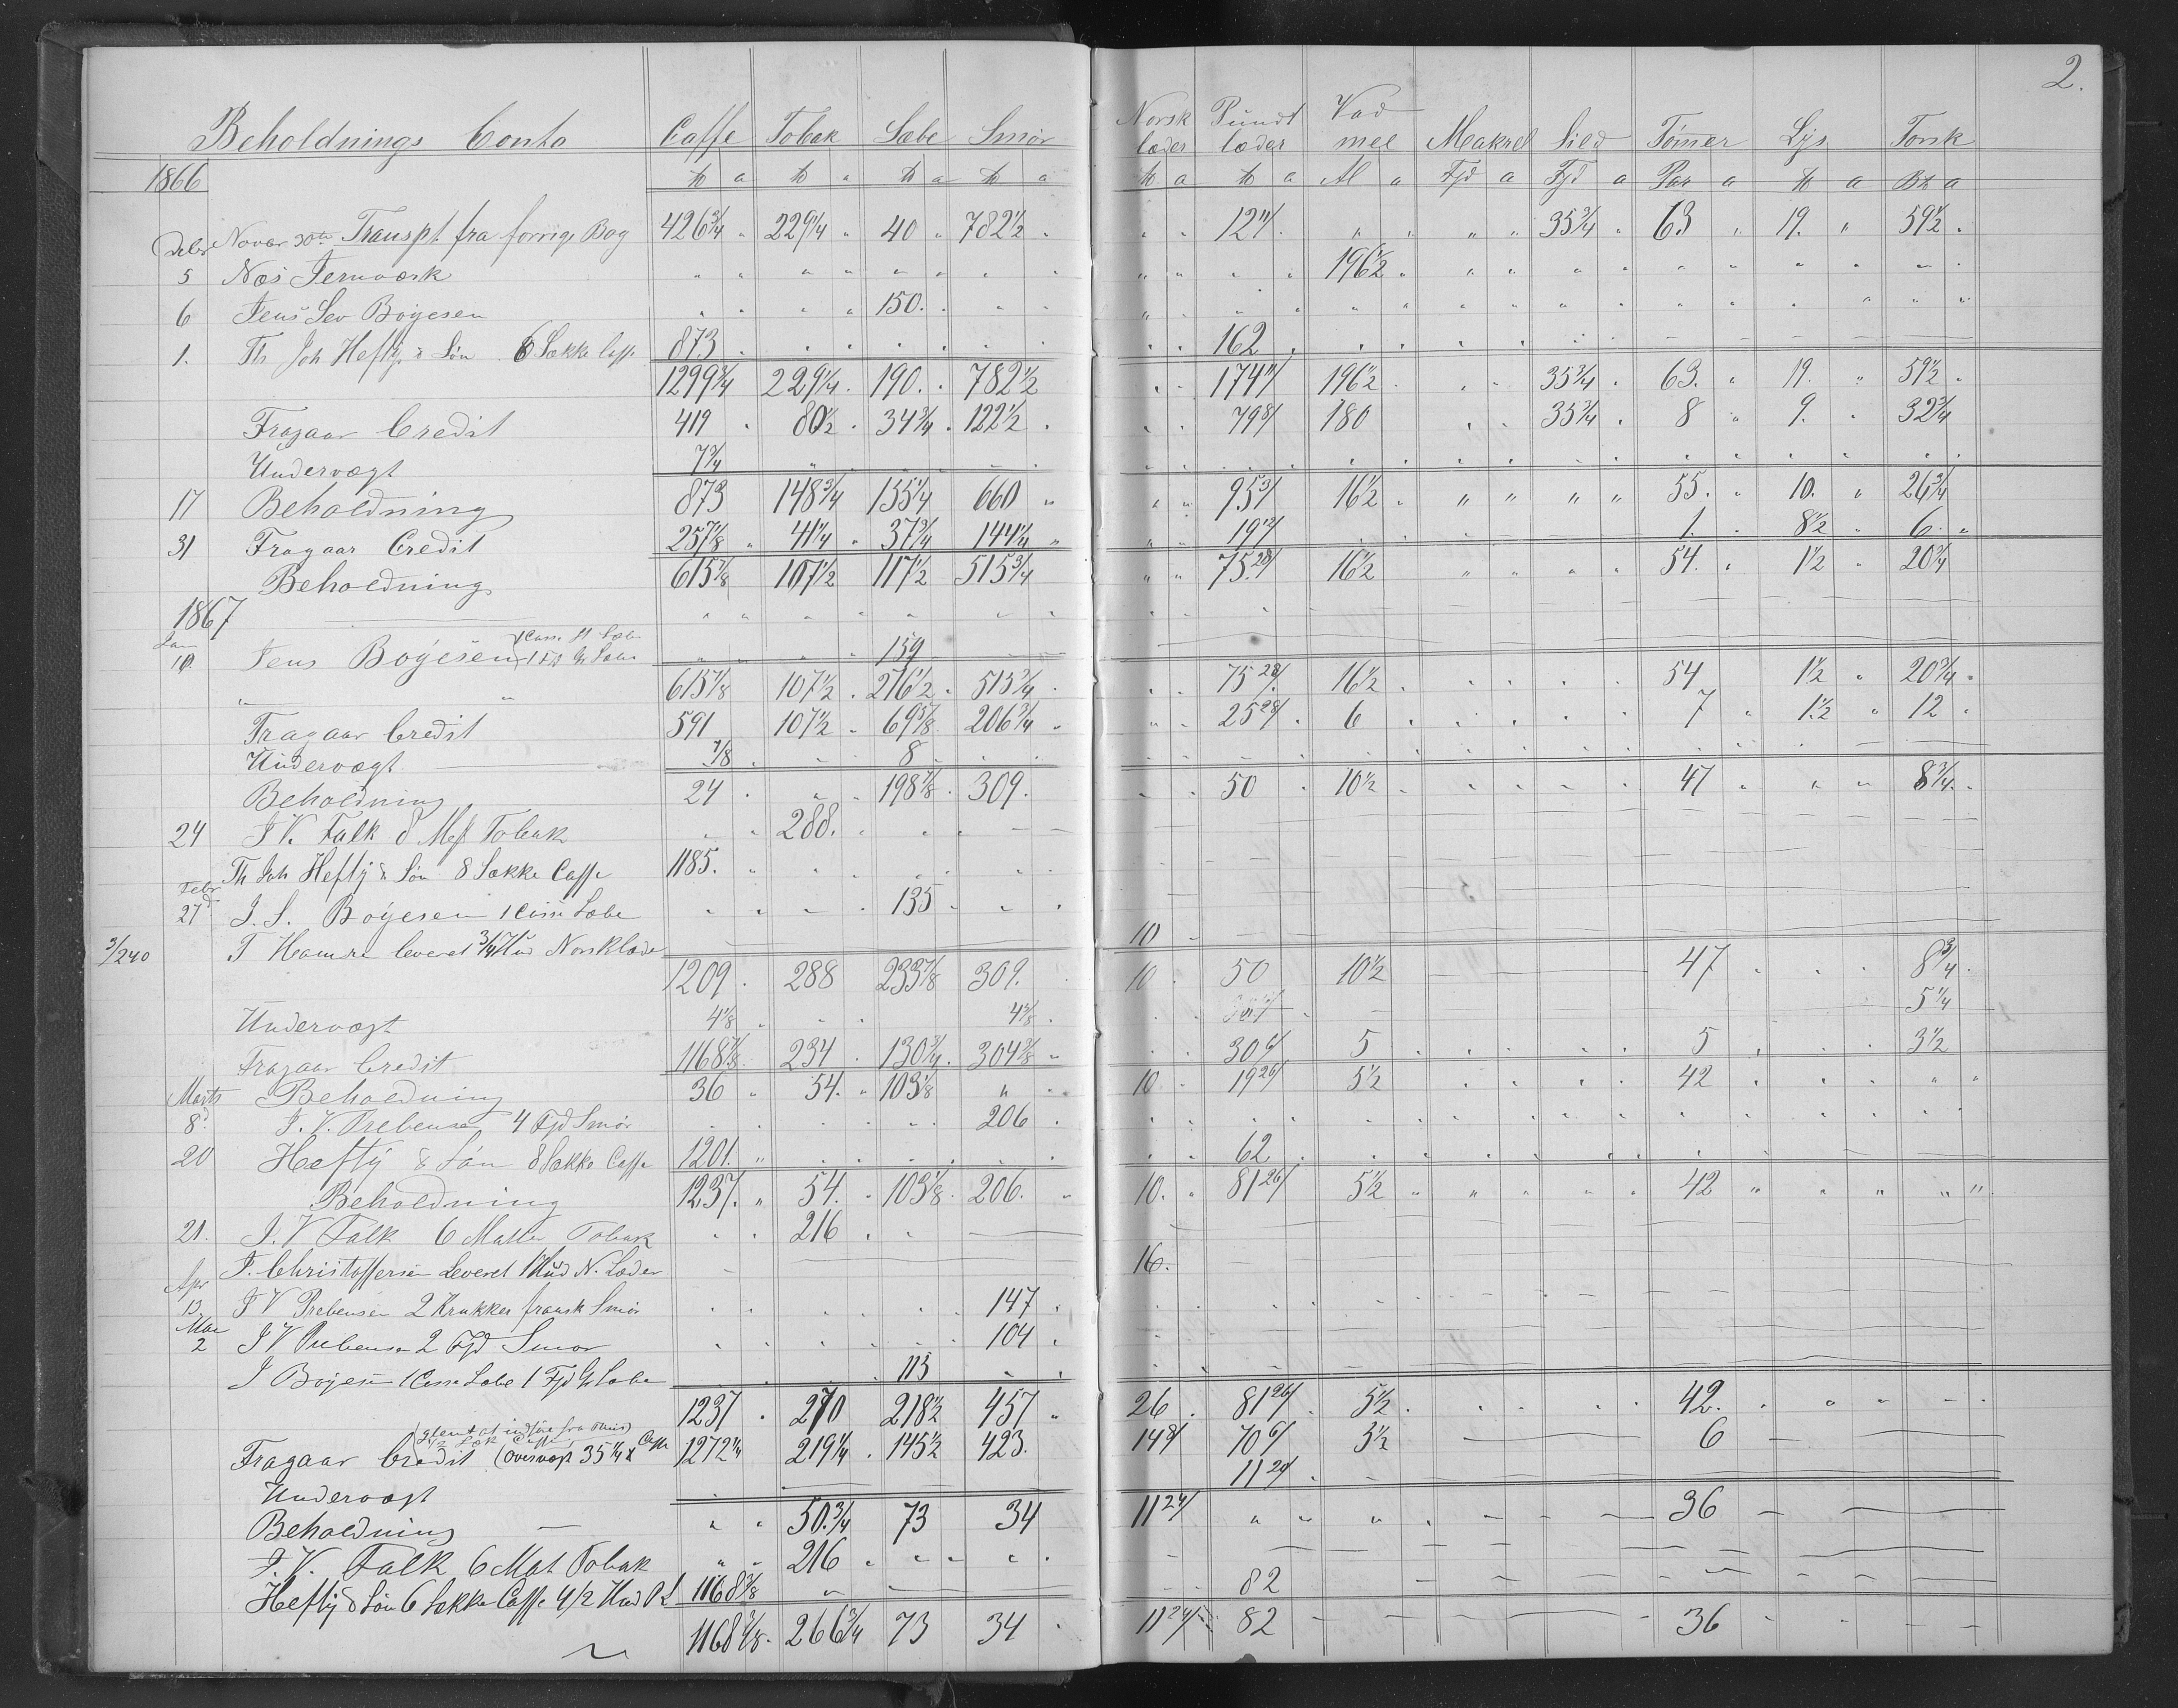 2.
Beholdnings Conto Caffe Tobak Sæbe Smör Norsk læder Pundt læder Vadmel Makrel Sild Tömmer Lys Torsk
1866 ℔ a ℔ a ℔ a ℔ a ℔ a ℔ a Al a Fjd a Fjd a Par a ℔ a a
Debr Novbr 30te Transpt. fra forrige Bog 426 3/4 229 1/4 40 782 1/2 12 11/ 35 3/4 63 19. 59 1/2
5 Næs Jernværk 196 1/2
6 Jens Sev Boyesen 150.
1. Th Joh Heftÿe & Sön 6 Sække Caffe 873 162
1299 3/4 229 1/4 190. 782 1/2 174 11/ 196 1/2 35 3/4 63. 19. 59 1/2
Fragaar Credit 419 80 1/2 34 3/4 122 1/2 79 8/ 180 35 3/4 8 9. 32 3/4
Undervægt 7 3/4
17 Beholdning 873 148 3/4 155 1/4 660 95 3/ 16 1/2 55. 10. 26 3/4
31 Fragaar Credit 257 1/8 41 1/4 37 3/4 144 1/4 19 12/ 1. 8 1/2 6
Beholdning 615 7/8 107 1/2 117 1/2 515 3/4 75. 28/ 16 1/2 54. 1 1/2 20 3/4
1867
Jan 10. Jens Boÿesen 159
615 7/8 107 1/2 276 1/2 515 3/4 75 28/ 16 1/2 54 1 1/2 20 3/4
Fragaar Credit 591 107 1/2 69 5/8 206 3/4 25 28/ 6 7 1 1/2 12
Undervægt 7/8 8
Beholdning 24 198 7/8 309. 50 10 1/2 47 8 3/4
24 J V. Falk 8 Mat Tobak 288.
Th Joh Heftÿe & Sön 8 Sække Caffe 1185.
Febr 27d J. S. Boÿesen 1 Casse Sæbe 135
3/240 T Hamre leveret 3/4 Hud Norsklæder 10
1209 288 233 7/8 309. 10 50 10 1/2 47 8 3/4
Undervægt 4 1/8 4 5/8 5 1/4
Fragaar Credit 1168 7/8 234 130 3/4 304 3/8 30 6/ 5 5 3 1/2
Marts Beholdning 36 54. 103 1/8 10 19 26/ 5 1/2 42
8d J. V. Prebensen 4 Fjd Smör 206
20 Heftÿ & Sön 8 Sække Caffe 1201. 62
Beholdning 1237. 54. 103 1/8 206. 10. 81 26/ 5 1/2 42
21. J. V Falk 6 Matter Tobak 216
F. Christoffersen Leveret 1 Hud N. Læder 16.
Apr 13. J V Prebensen 2 Krukker fransk Smör 147
Mai 2 J V Prebensen 2 Fjd Smör 104
J Boyesen 1 Casse Sæbe 1 Fjd Gr Sæbe 115
1237 270 218 1/2 457 26 81 26/ 5 1/2 42.
Fragaar Credit (Overvægt 35 1/4 ℔ Caffe 1272 1/4 219 1/4 145 1/2 423. 14 8/ 70 6/ 5 1/2 6
Undervægt 11 20/
Beholdning 50. 3/4 73 34 11 24/ 36
J. V. Falk 6 Mat Tobak 216
Heftÿ & Sön 6 Sække Caffe 4 1/2 Hud P L 1168 3/8 82
1168 3/8 266 3/4 73 34 11 24/ 82 36